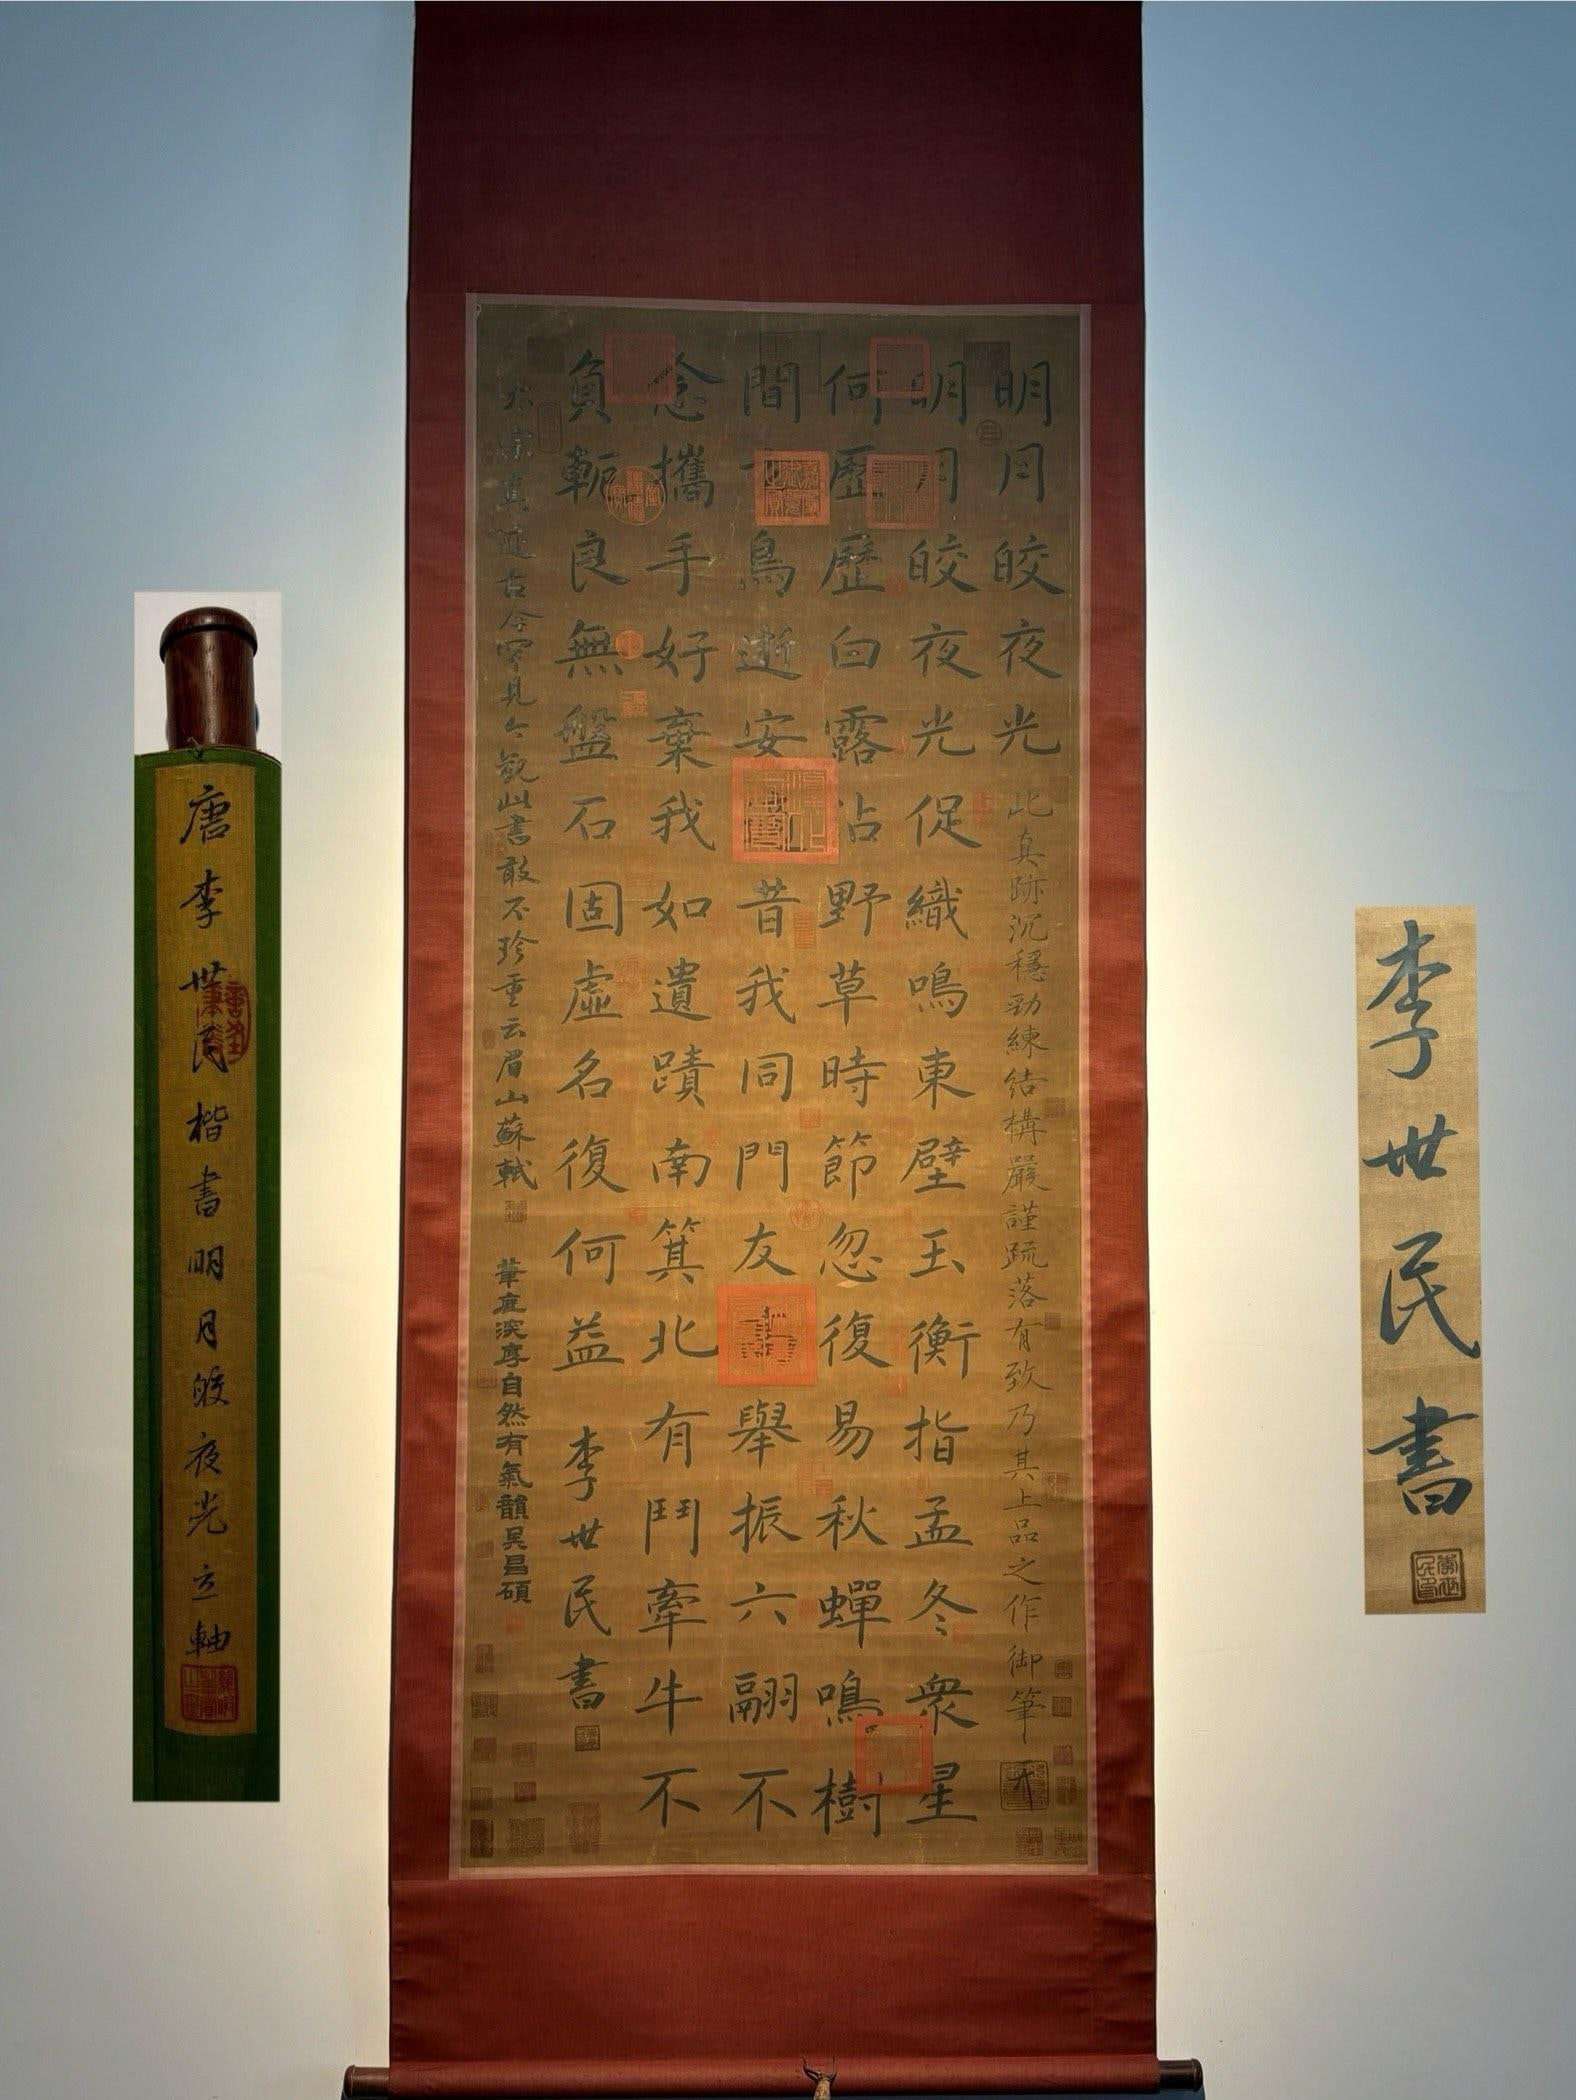 明月皎夜光
此真跡沉穩勁練結構嚴謹疏落有致乃其上品之作御筆
明月皎夜光促織鳴東壁玉衡指孟冬眾星
何歷歷白露沾野草時節忽復易秋蟬鳴樹
間 鳥逝安 昔我同門友 舉振六翮不
念攜手好棄我如遺蹟南箕北有鬥牽牛不
負軛良無盤石固虛名復何益
李世民書
太宗真迹古今罕見今觀此書敢不珍重云眉山蘇軾
華庭深厚自然有氣韻吳昌碩
唐李世民楷書明月皎夜光立軸
李世民書